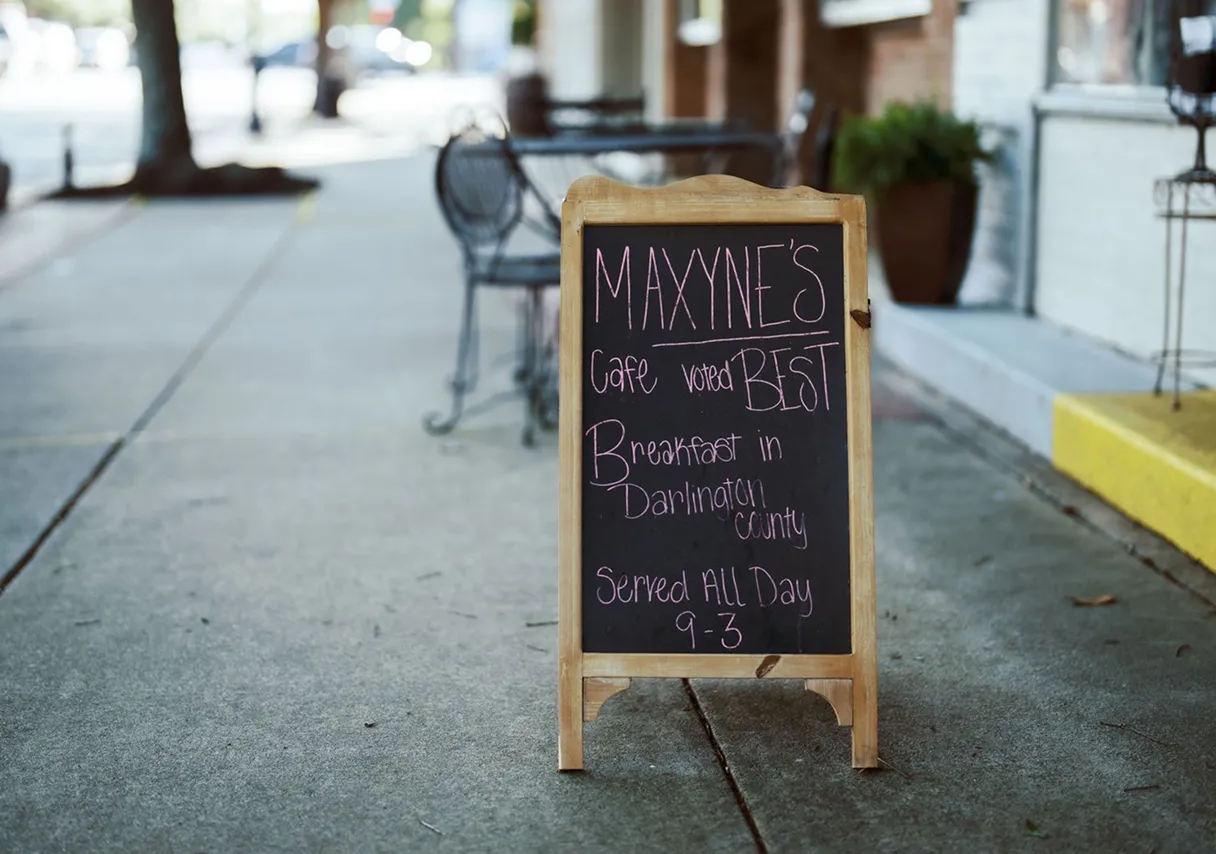 MAXYNE'S
Cafe voted BEST
Breakfast in
Darlington
county
Served All Day
9-3